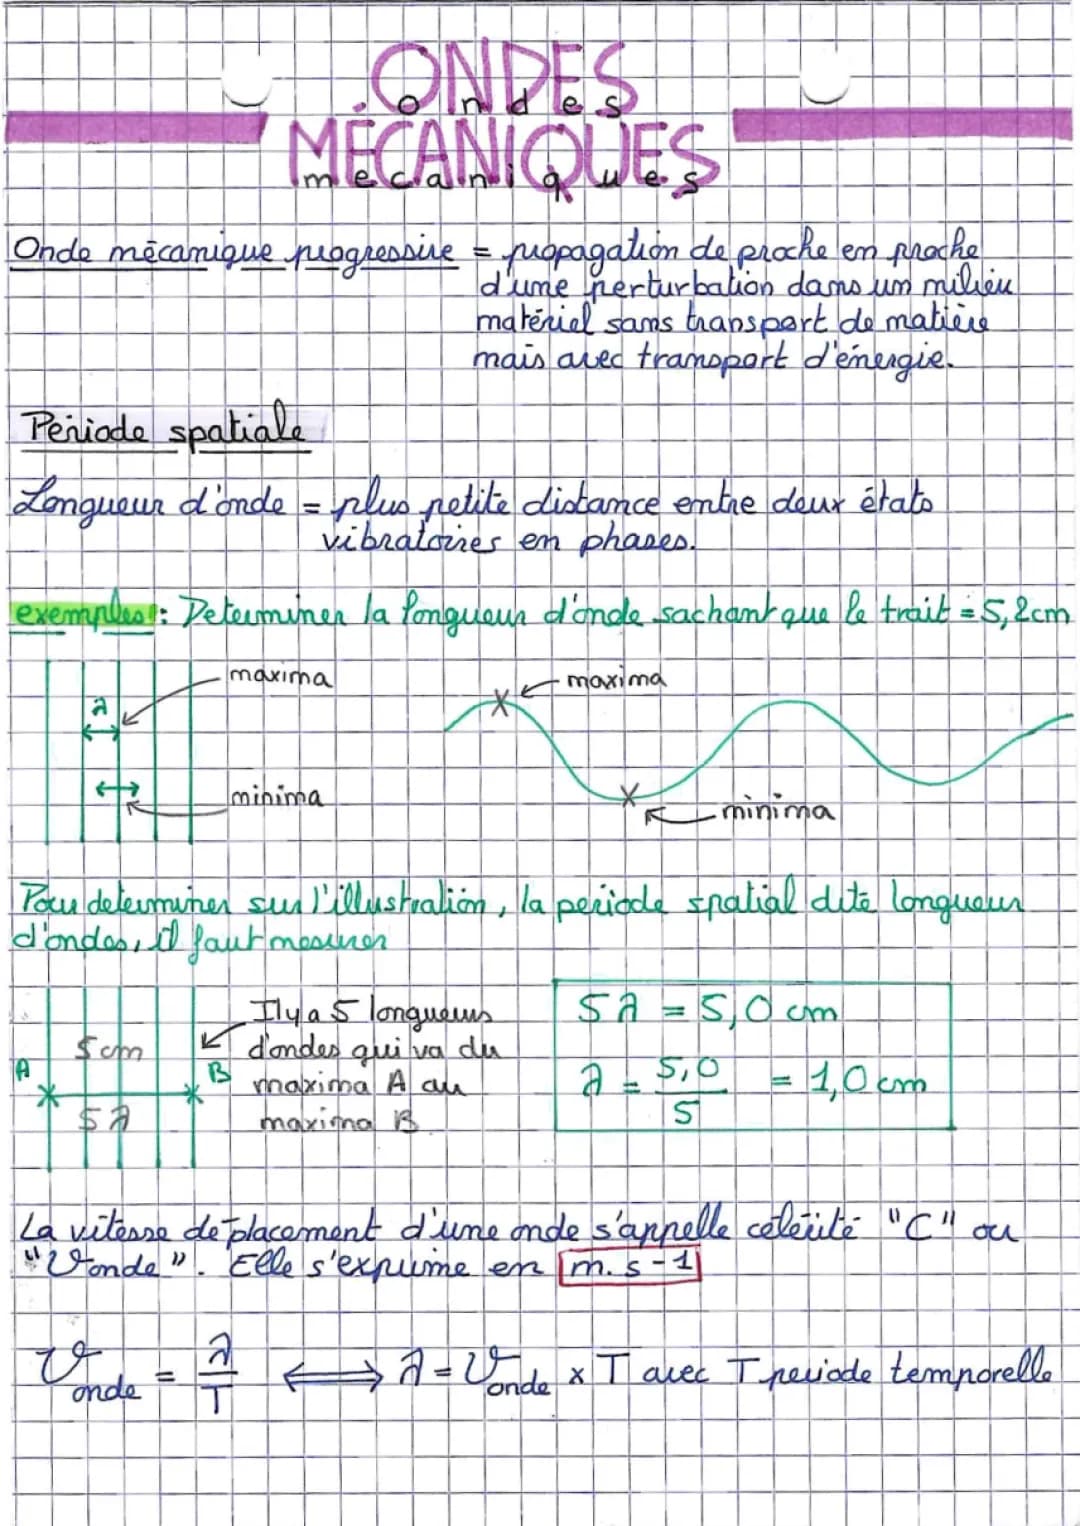 ONDES
ondes
MÉCANIQUES
mécaniques
Onde mécanique progressive = propagation de proche en proche
d'une perturbation dans un milieu
matériel sans transport de matière
mais avec transport d'énergie.
Période spatiale
Longueur d'onde = plus petite distance entre deux états
vibratoires en phases.
exemples : Determiner la longueur d'onde sachant que le trait = 5,2cm
maxima
maxima
λ
minima
minima
Pour determiner sur l'illustration, la periode spatial dite longueur
d'ondes, il faut mesurer
Il y a 5 longueurs
d'ondes qui va du
maxima A au
maxima B
5cm
A
B
5λ
5λ = 5,0 cm
λ = 5,0 / 5 = 1,0 cm
La vitesse déplacement d'une onde s'appelle célérité "C" ou
"Vonde". Elle s'exprime en m.s-1
Vonde = λ / T ⟺ λ = Vonde × T avec T periode temporelle